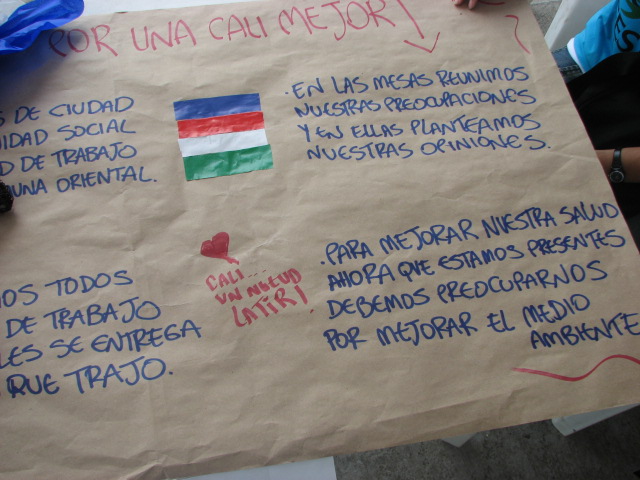 POR UNA CALI MEJOR!
S DE CIUDAD
UIDAD SOCIAL
D DE TRABAJO
UNA ORIENTAL.
· EN LAS MESAS REUNIMOS
NUESTRAS PREOCUPACIONES
Y EN ELLAS PLANTEAMOS
NUESTRAS OPINIONES.
OS TODOS
DE TRABAJO
LES SE ENTREGA
QUE TRAJO.
CALI...
UN NUEVO
LATIR!
· PARA MEJORAR NUESTRA SALUD
AHORA QUE ESTAMOS PRESENTES
DEBEMOS PREOCUPARNOS
POR MEJORAR EL MEDIO
AMBIENTE